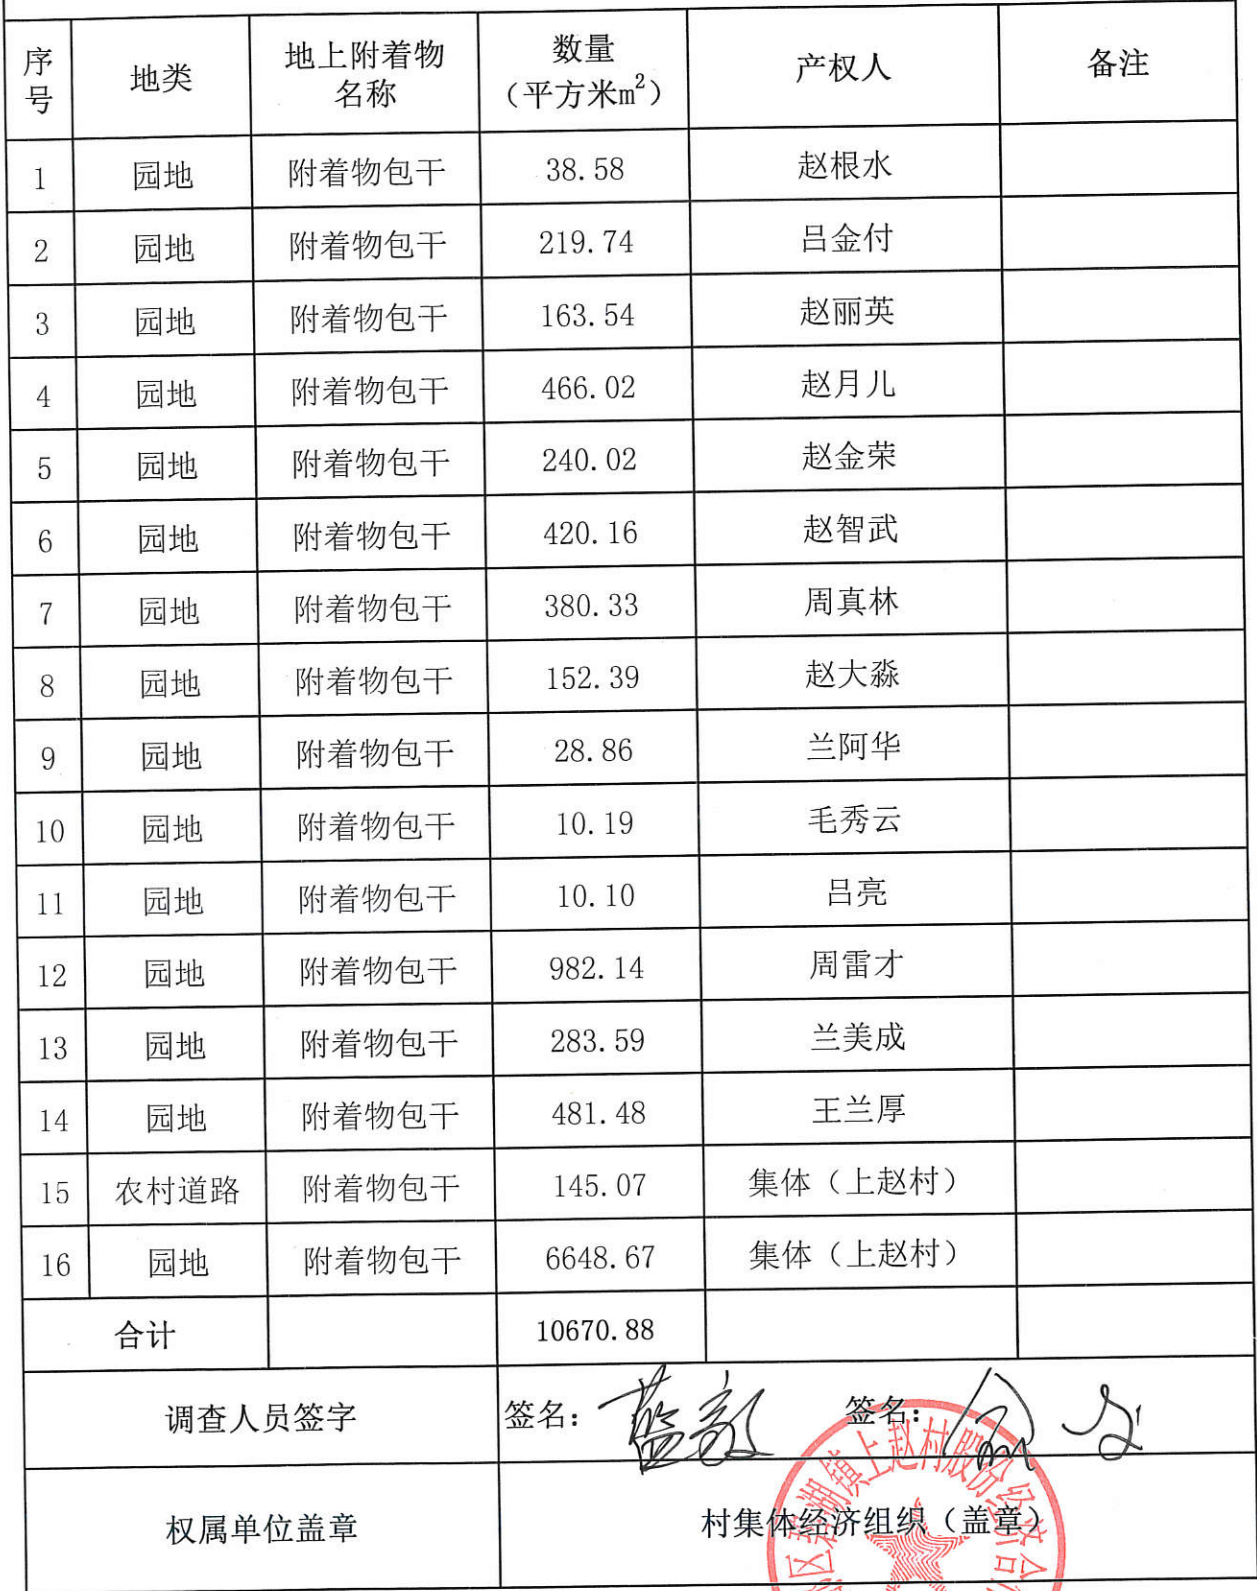 序号 地类 地上附着物名称 数量（平方米m²） 产权人 备注
1 园地 附着物包干 38.58 赵根水
2 园地 附着物包干 219.74 吕金付
3 园地 附着物包干 163.54 赵丽英
4 园地 附着物包干 466.02 赵月儿
5 园地 附着物包干 240.02 赵金荣
6 园地 附着物包干 420.16 赵智武
7 园地 附着物包干 380.33 周真林
8 园地 附着物包干 152.39 赵大淼
9 园地 附着物包干 28.86 兰阿华
10 园地 附着物包干 10.19 毛秀云
11 园地 附着物包干 10.10 吕亮
12 园地 附着物包干 982.14 周雷才
13 园地 附着物包干 283.59 兰美成
14 园地 附着物包干 481.48 王兰厚
15 农村道路 附着物包干 145.07 集体（上赵村）
16 园地 附着物包干 6648.67 集体（上赵村）
合计 10670.88
调查人员签字 签名： 签名：
权属单位盖章 村集体经济组织（盖章）
区碧湖镇上赵村股份经济合